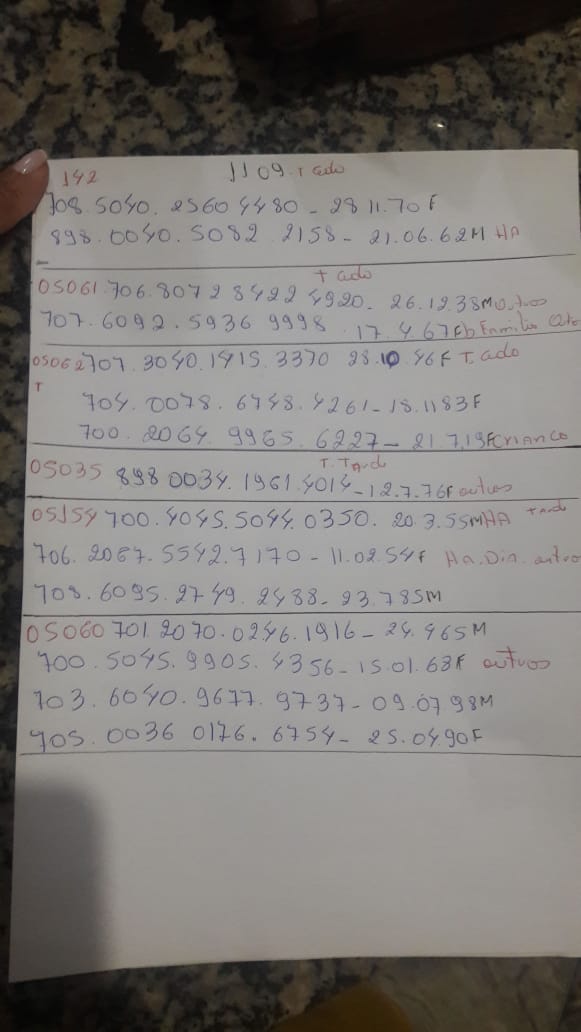 142 1109. T ado
708.5040. 2560 4480 - 28 11.70 F
898.0040.5082 2158 - 21.06.62M HA
T ado
05061.706.8072 8422 4920. 26.12.38M outros
707.6092.5936 9998. 17.4.67F b Familia
05062 707.3040.1415.3370 28.10.46F T. ado
T
704.0078.6748.4261 - 18.1183F
700.2064.9965.6227 - 21.7.19F crianca
T. T
05035 898 0034.1961.4014 - 12.7.76F outros
05154 700.4045.5044.0350. 20.3.55M HA
706.2087.5542.7170 - 11.02.54F Ha. Dia. outro
708.6095.2749.2488 - 23.785M
05060 701.2070.0246.1916 - 24.465M
700.5045.9905.4356 - 15.01.68F outros
703.6040.9677.9737 - 09.07 98M
705.0036 0176.6754 - 25.04.90F